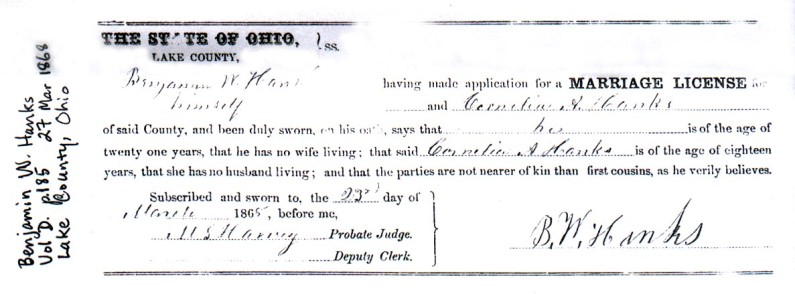 Benjamin W. Hanks
Vol D. p185 27 Mar 1868
Lake County, Ohio
THE STATE OF OHIO, } ss.
LAKE COUNTY,
Benjamin W. Hanks having made application for a MARRIAGE LICENSE for
himself and Cornelia A. Hanks
of said County, and been duly sworn, on his oath, says that he is of the age of
twenty one years, that he has no wife living; that said Cornelia A Hanks is of the age of eighteen
years, that she has no husband living; and that the parties are not nearer of kin than first cousins, as he verily believes.
Subscribed and sworn to, the 23d day of
March 1868, before me,
Harvey Probate Judge.
B. W. Hanks
Deputy Clerk.